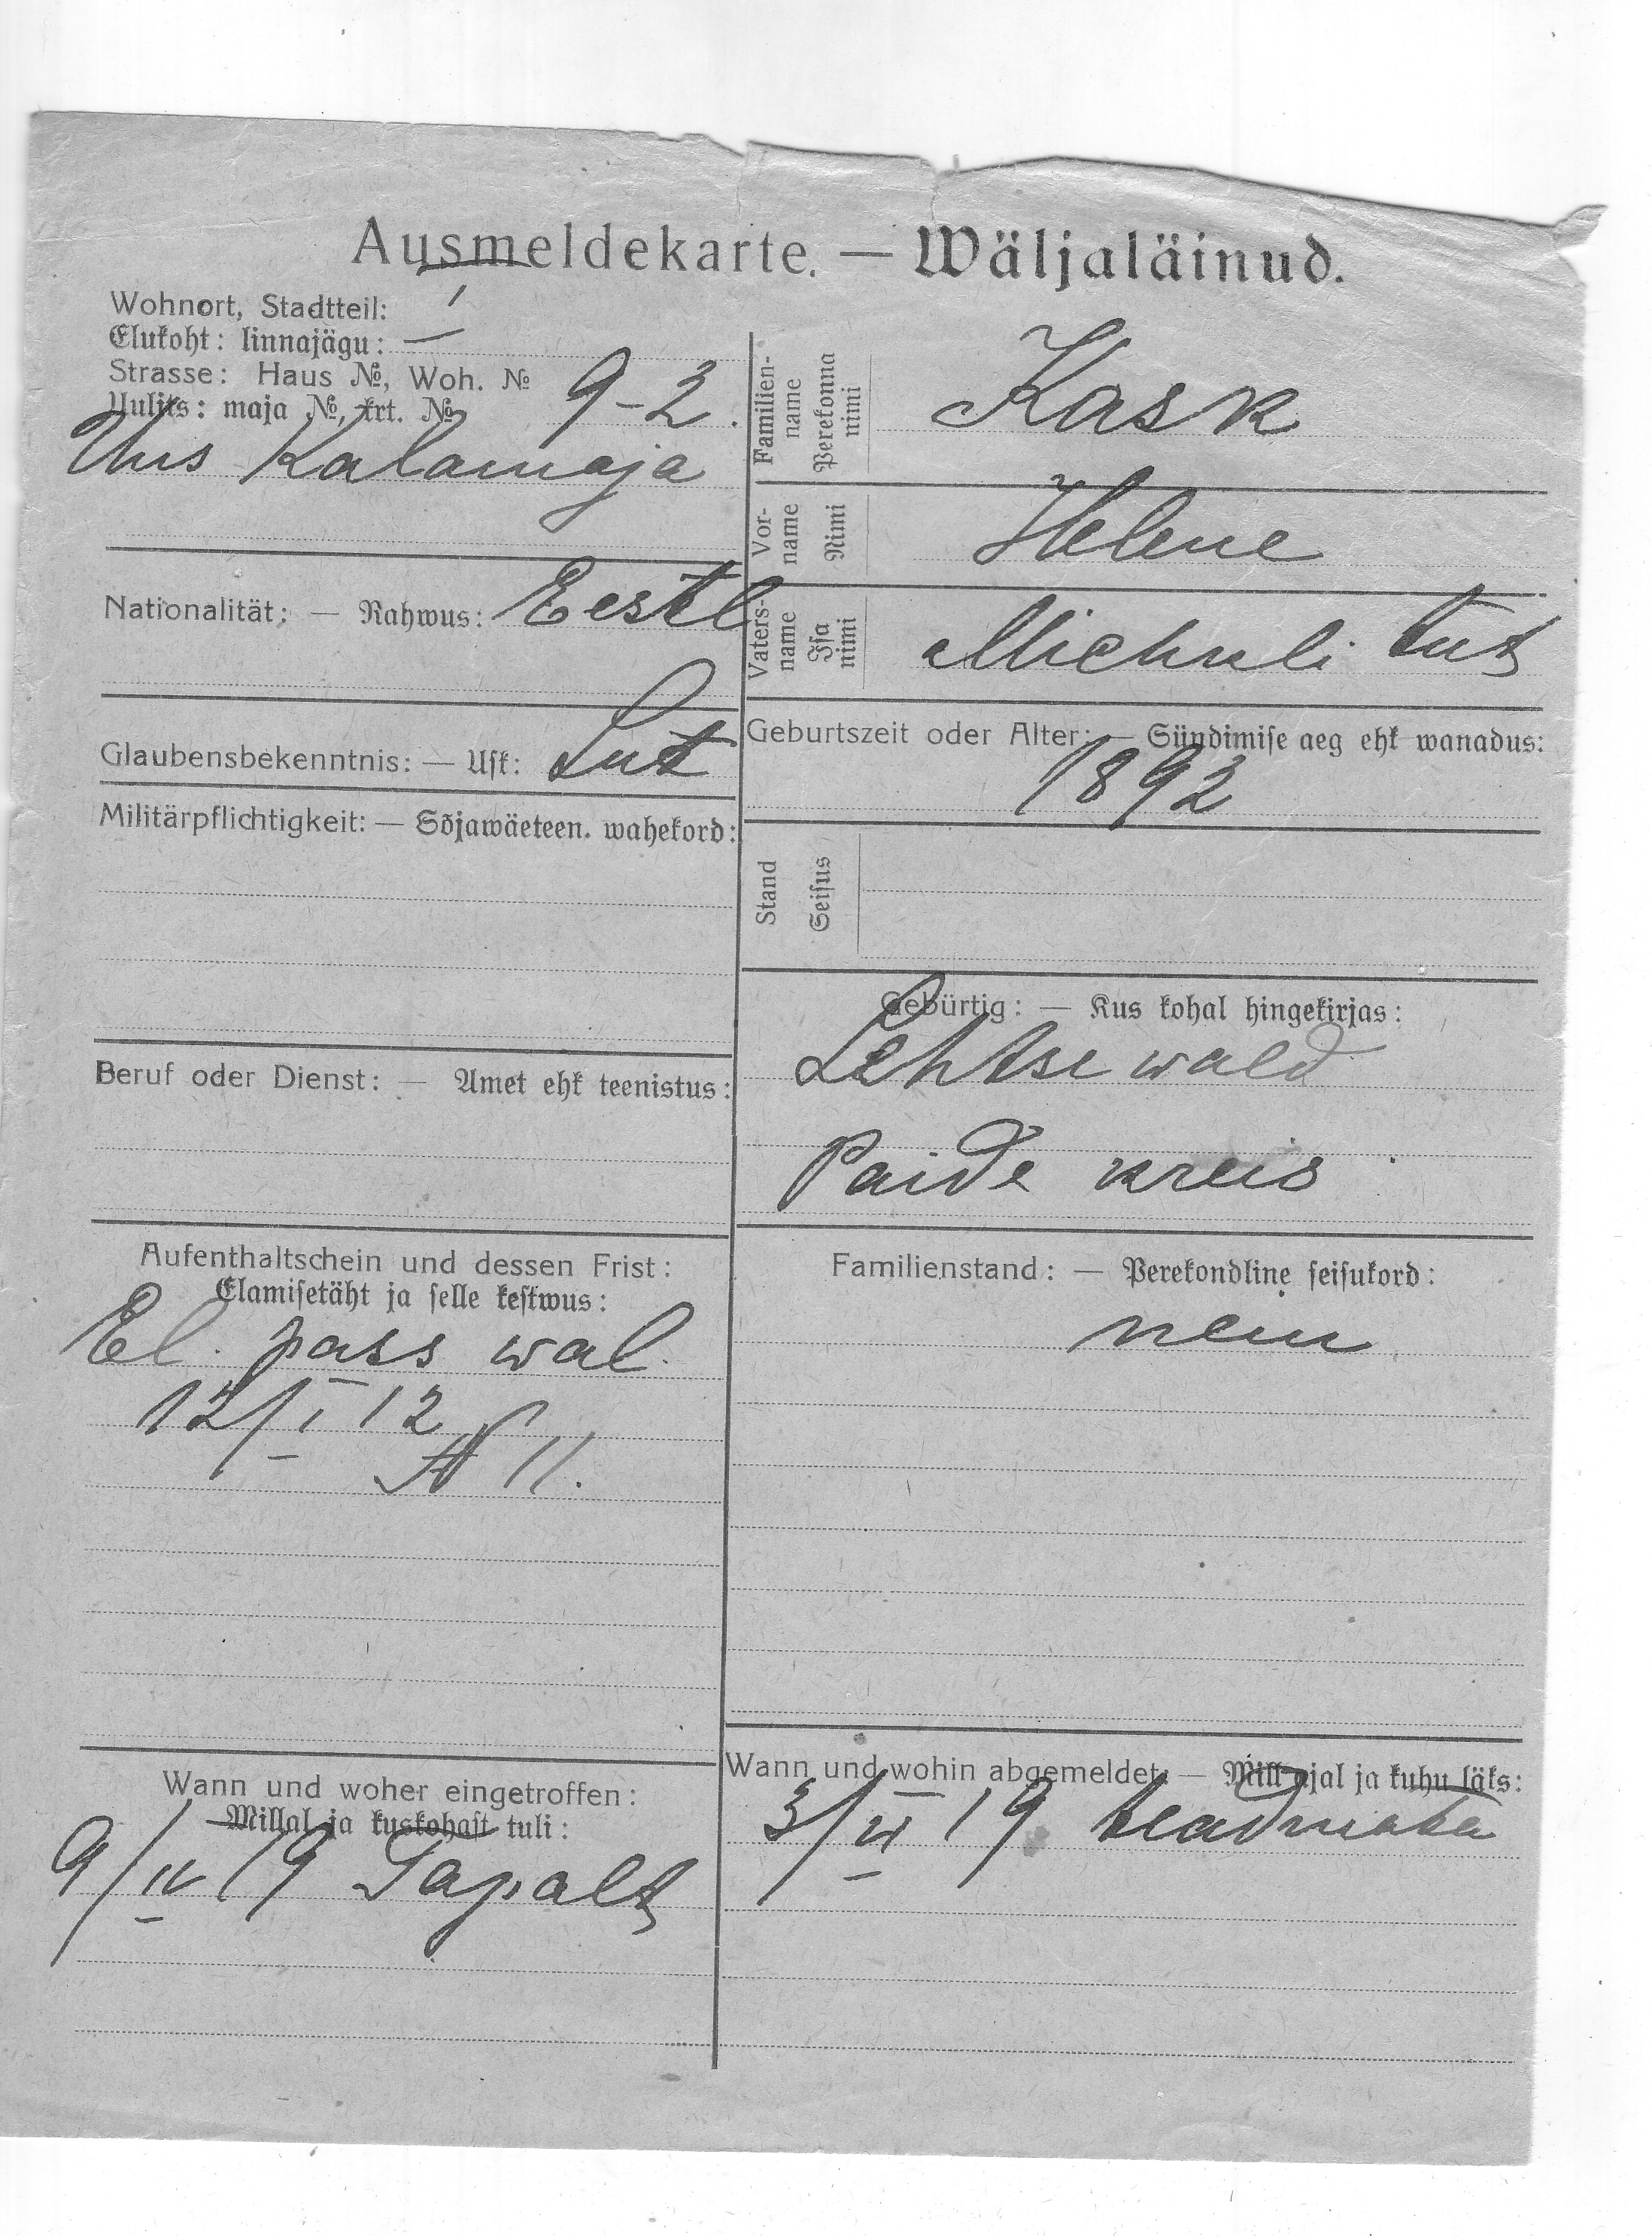 Ausmeldekarte. — Wäljaläinud.
Wohnort, Stadtteil:
Elukoht: linnajägu:
I
Strasse: Haus №, Woh. №
Uulits: maja №, krt. №
9-2.
Uus Kalamaja
Nationalität: — Rahwus: Eestl
Glaubensbekenntnis: — Usk: Lut
Militärpflichtigkeit: — Sõjawäeteen. wahekord:
Beruf oder Dienst: — Amet ehk teenistus:
Aufenthaltschein und dessen Frist:
Elamisetäht ja selle kestwus:
El. pass wal.
12/I 12
№ 11.
Wann und woher eingetroffen:
Millal ja kuskohast tuli:
9/IV 19 Tapalt
Familien-
name
Perekonna
nimi
Kask
Vor-
name
Nimi
Helene
Vaters-
name
Isa
nimi
Michuli tüt
Geburtszeit oder Alter: — Sündimise aeg ehk wanadus:
1892
Stand
Seisus
Gebürtig: — Kus kohal hingekirjas:
Lehtse wald
Paide kreis
Familienstand: — Perekondline seisukord:
neiu
Wann und wohin abgemeldet: — Mill ajal ja kuhu läks:
3/VI 19 teadmata